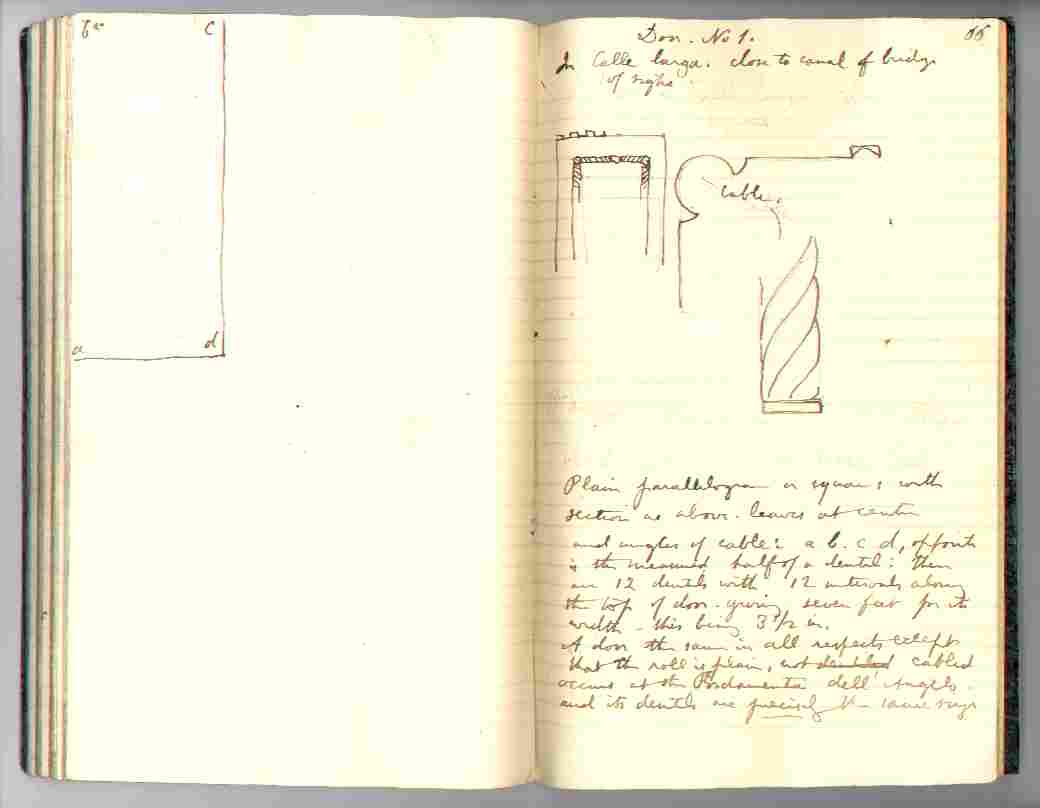 b
c
a
d
66
Door. No 1.
In Calle larga. close to canal of bridge
of sighs
cable.
Plain parallelogram or square: with
section as above. leaves at centre
and angles of cable: a b. c d, opposite
is the measured half of a dentil: there
are 12 dentils with 12 intervals along
the top of door. giving seven feet for its
width - this being 3 1/2 in.
A door the same in all respects except
that the roll is plain, not dentiled cabled
occurs at the Fondamenta dell' Angelo.
and its dentils are precisely the same size